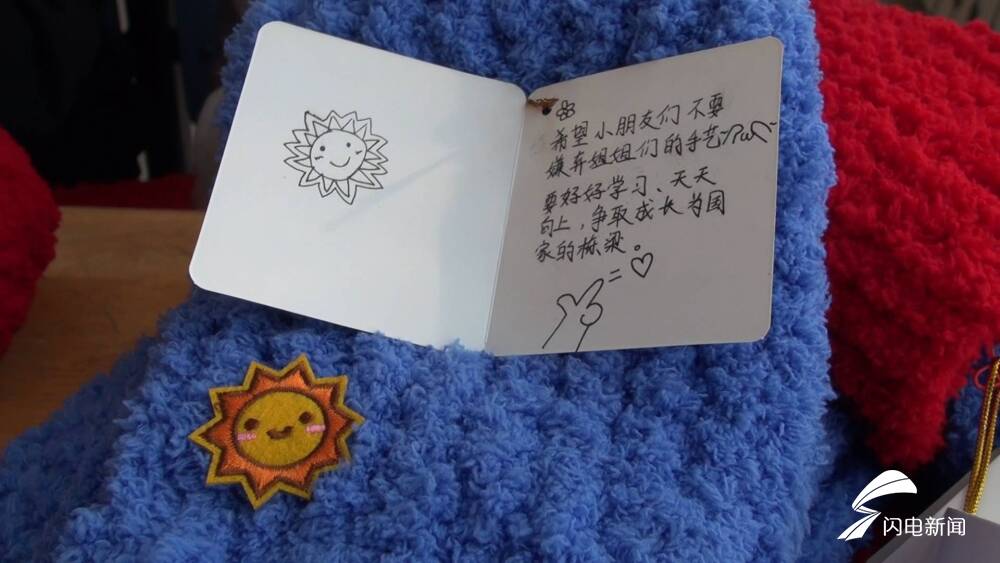 希望小朋友们不要
嫌弃姐姐们的手艺
要好好学习、天天
向上，争取成长为国
家的栋梁。
闪电新闻